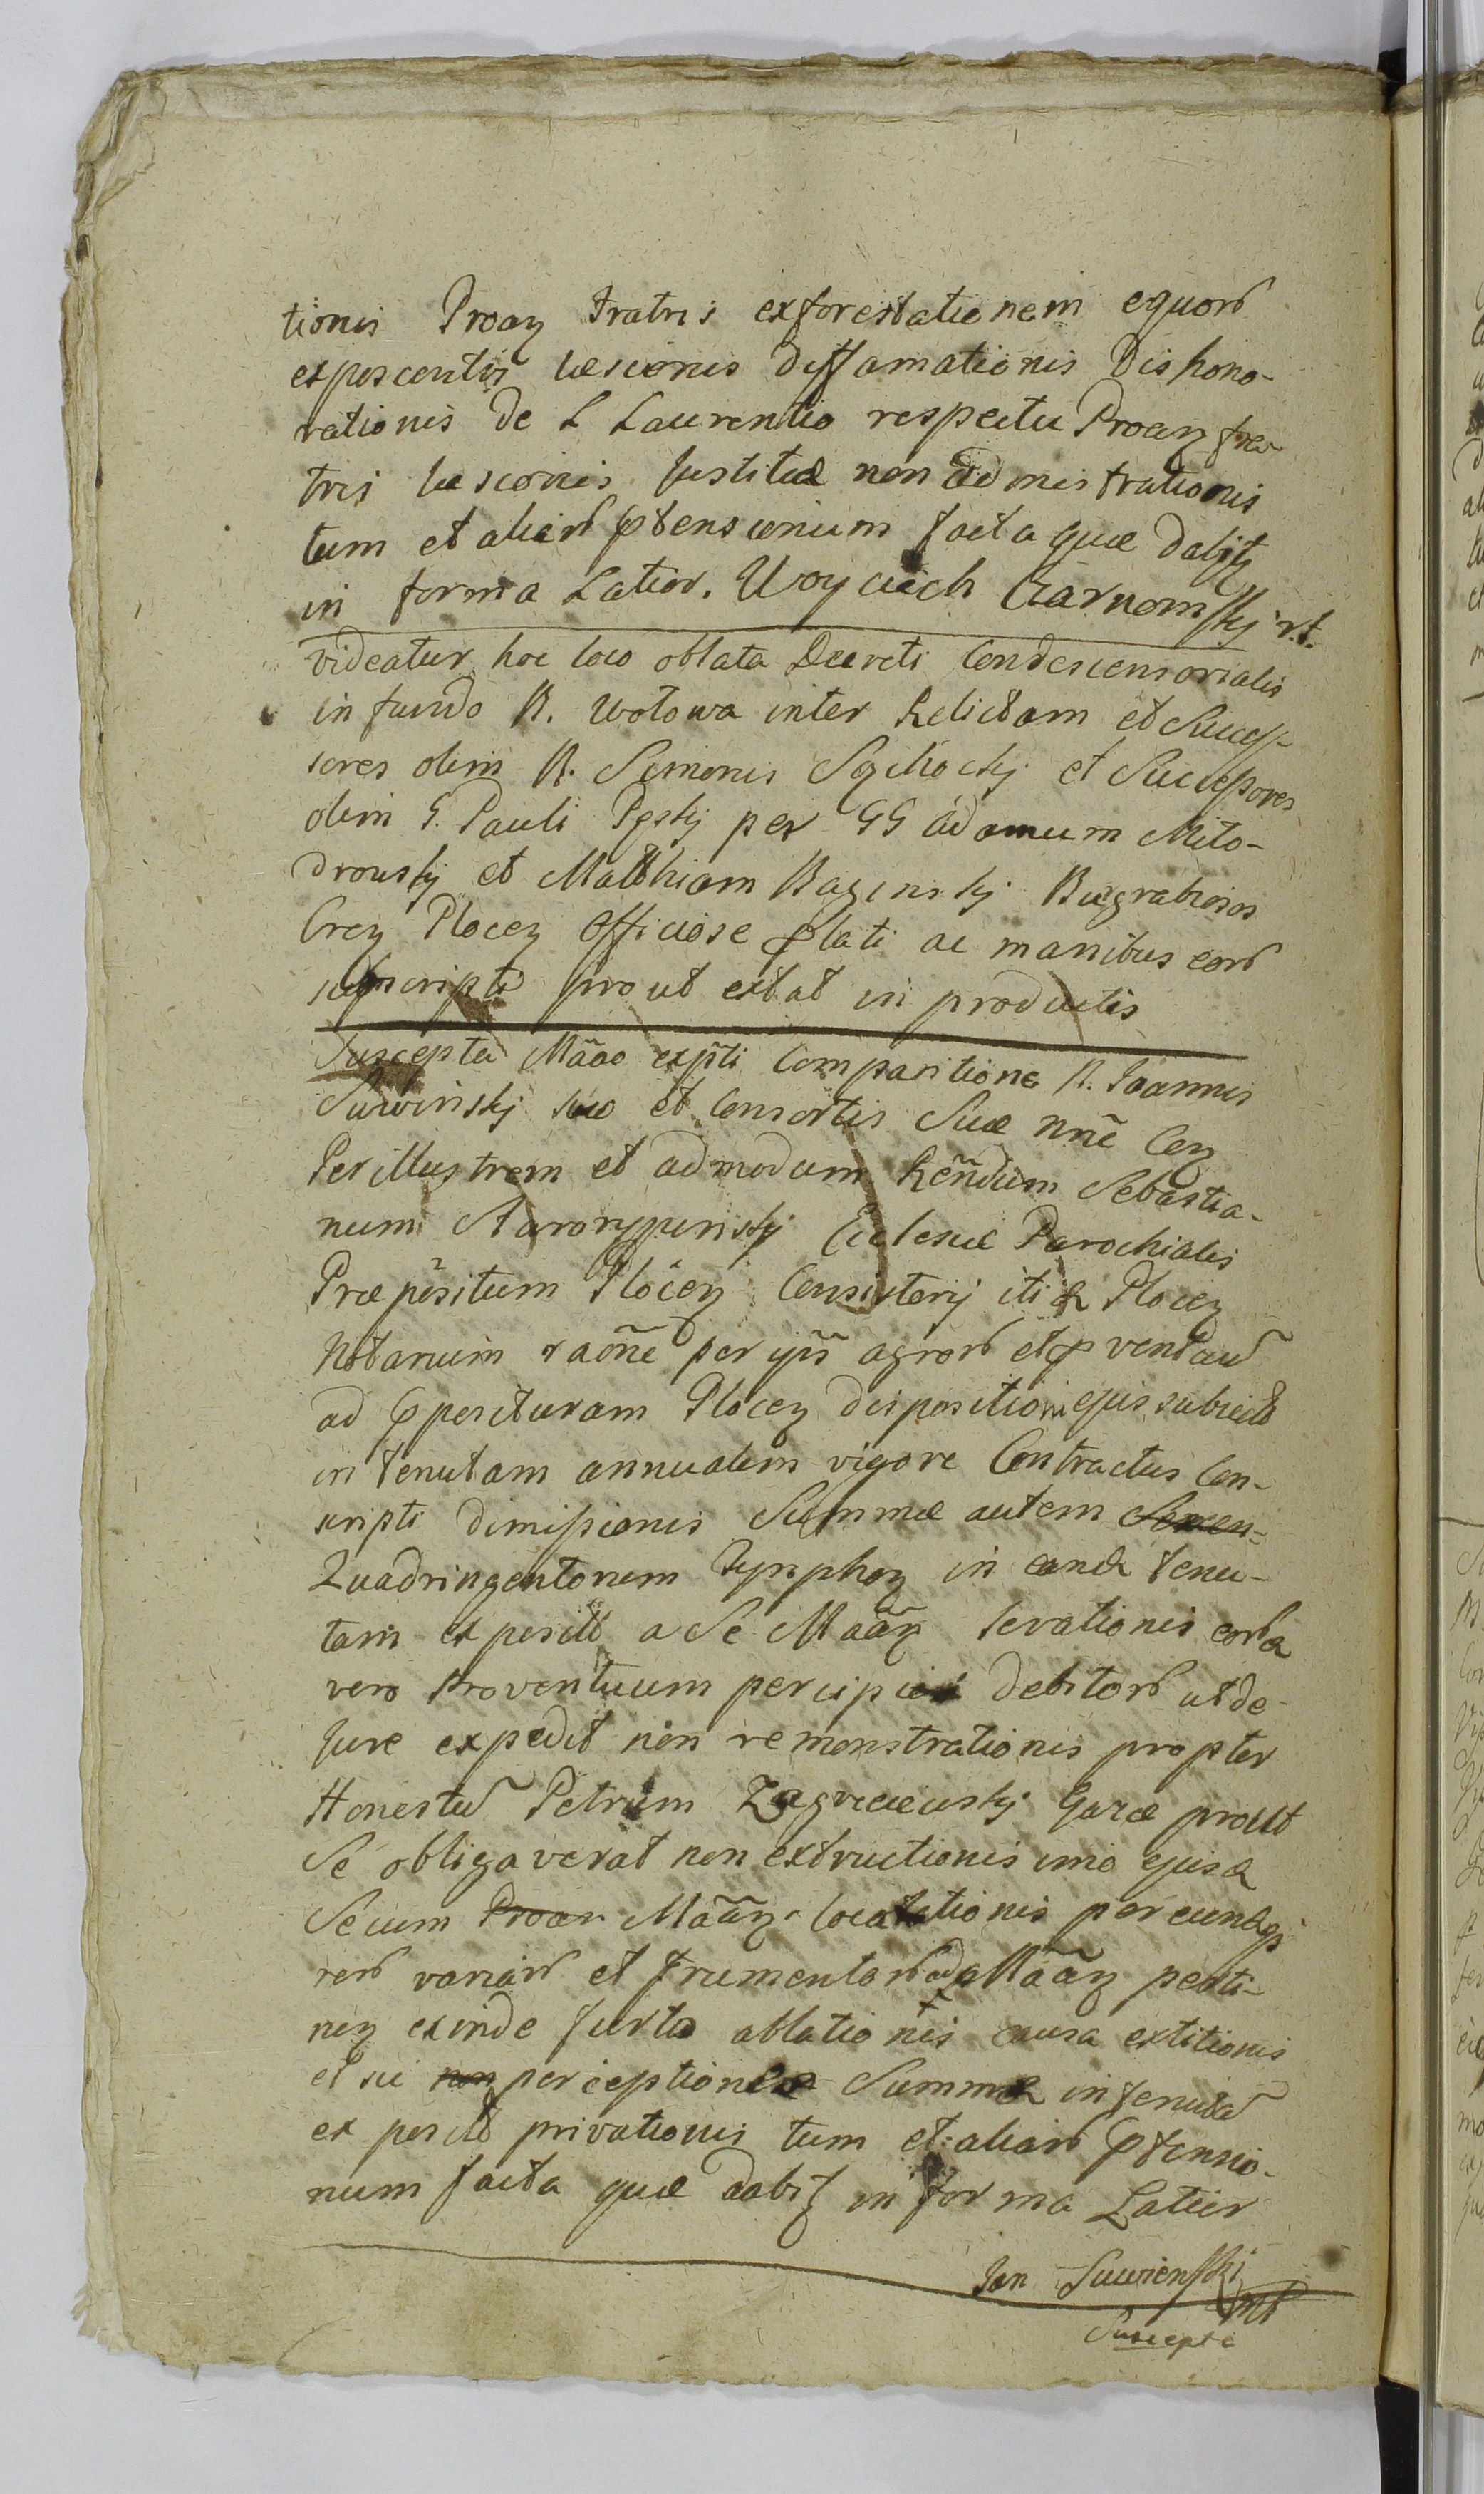 tionis Proaz Fratris exforestationem equorũ
exposcentis læsionis diffamationis Dishono-
rationis de L Laurentio respectu Proaz fra-
tris læsionis Justitiæ non administrationis
tum et aliarũ ptensionum facta quæ dabit
in forma Latior. Woyciech Czarnomskj
videatur hoc loco oblata Decreti Condescensorialis
in fundo B. Wołowa inter Relictam et Succes-
sores olim B. Simonis et Successores
olim G. Pauli per GG Adamum Miło-
drouskj et Matthiam Baginskj Burgrabios
Crez Plocez officiose plati ac manibus eorũ
subscripti prout extat in productis
Suscepta Mãae exp̃ti Comparitione B. Joannis
Suwinskj suo et Consortis Suæ nñe Cez
Perillustrem et admodum Reñdum Sebastia-
num Starorypinskj Ecclesiæ Parochialis
Præpositum Plocez Consistorij itiæ Plocez
Notarium raõne per ip̃s agrorũ et pventuũ
ad pposituram Plocez dispositioni ejus subiect
in tenutam annualem vigore Contractus Con-
scripti dimissionis Summæ autem
Quadringentorum Tynphoz in eand tenu-
tam exposit a Se Mãaz levationis
vero Proventuum percipi debitorũ ut de
Jure expedit non remonstrationis propter
Honestũ Petrum Zagrzeiewskj prout
Se obligaverat non extructionis imo
Secum Proar Mãaz locationis per
rerũ variarũ et frumentorũ ad Mãaz perti-
nez exinde furto ablationis causa extitionis
et sic non perceptione Summa in tenutã
exposit privationis tum et aliarũ ptensio-
num facta quæ dabit in forma Latior
Jan Suwienski
mp
Suscepta